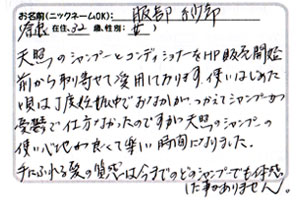 お名前(ニックネームOK): 服部 紗耶
奈良 在住、32 歳、性別:女
天照のシャンプーとコンディショナーをHP販売開始
前から取り寄せて愛用しております。使いはじめた
頃は3度妊娠中でおなかが、つかえてシャンプーが
憂鬱で仕方なかったのですが天照のシャンプーの
使い心地が良くて楽しい時間になりました。
手にふれる髪の質感は今までのどのシャンプーでも体感
した事がありません。